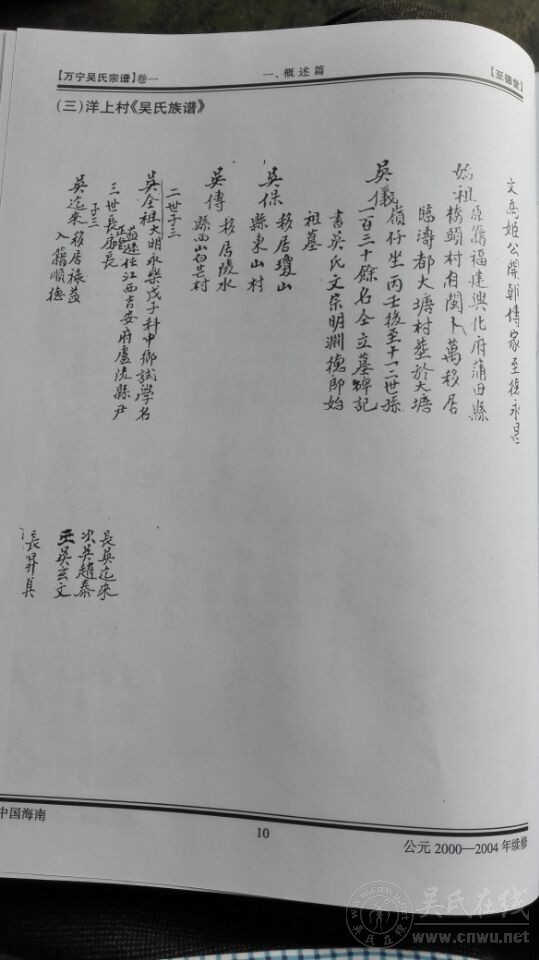 【万宁吴氏宗谱】卷一
一、概述篇
【至德堂】
(三)洋上村《吴氏族谱》
文為姬公開郭傳家至後永昌
始祖原籍福建興化府莆田縣
橋頭村有閩卜萬移居
臨濤都大塘村塟於大塘
嶺仔坐丙壬後至十一二世孫
吳儀
一百三十餘名仝立墓碑記
書吳氏文宗明淵德即始
祖墓
吳保 移居瓊山
縣東山村
吳傳 移居陵水
縣西山白芒村
二世子三
吳全祖大明永樂戊子科中鄉試學名
任江西吉安府盧陵縣尹
三世長房長
子三
吳迄來 移居
入籍順德
長吳迄來
次吳趙泰
三吳玄文
長昇真
中国海南
10
公元 2000—2004 年续修
吴氏在线
www.cnwu.net